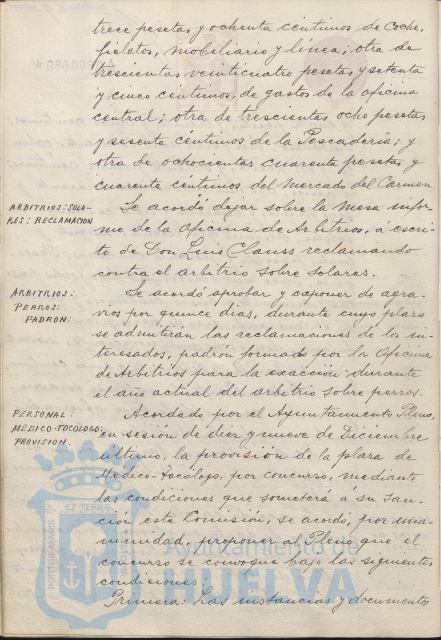 trece pesetas y ochenta céntimos de Coche,
fielatos, mobiliario y línea; otra de
trescientas veinticuatro pesetas y setenta
y cinco céntimos, de gastos de la oficina
central; otra de trescientas ocho pesetas
y sesenta céntimos de la Pescadería; y
otra de ochocientas cuarenta pesetas y
cuarenta céntimos del Mercado del Carmen
ARBITRIOS: SOLA-
RES: RECLAMACION
Se acordó dejar sobre la mesa infor-
me de la Oficina de Arbitrios, á escri-
to de Don Luis Clauss reclamando
contra el arbitrio sobre solares.
ARBITRIOS:
PERROS:
PADRON:
Se acordó aprobar y exponer de agra-
vios por quince dias, durante cuyo plazo
se admitirán las reclamaciones de los in-
teresados, padrón formado por la Oficina
de Arbitrios para la exacción durante
el año actual del arbitrio sobre perros.
PERSONAL:
MEDICO-TOCOLOGO:
PROVISION:
Acordado por el Ayuntamiento Pleno,
en sesión de diez y nueve de Diciembre
último, la provisión de la plaza de
Médico-Tocólogo, por concurso, mediante
las condiciones que someterá a su san-
ción esta Comisión, se acordó, por una-
nimidad, proponer al Pleno que el
concurso se convoque bajo las siguientes
condiciones:
Primera: Las instancias y documentos
PORTUS MARIS
ET TERRAE
Ayuntamiento de
HUELVA